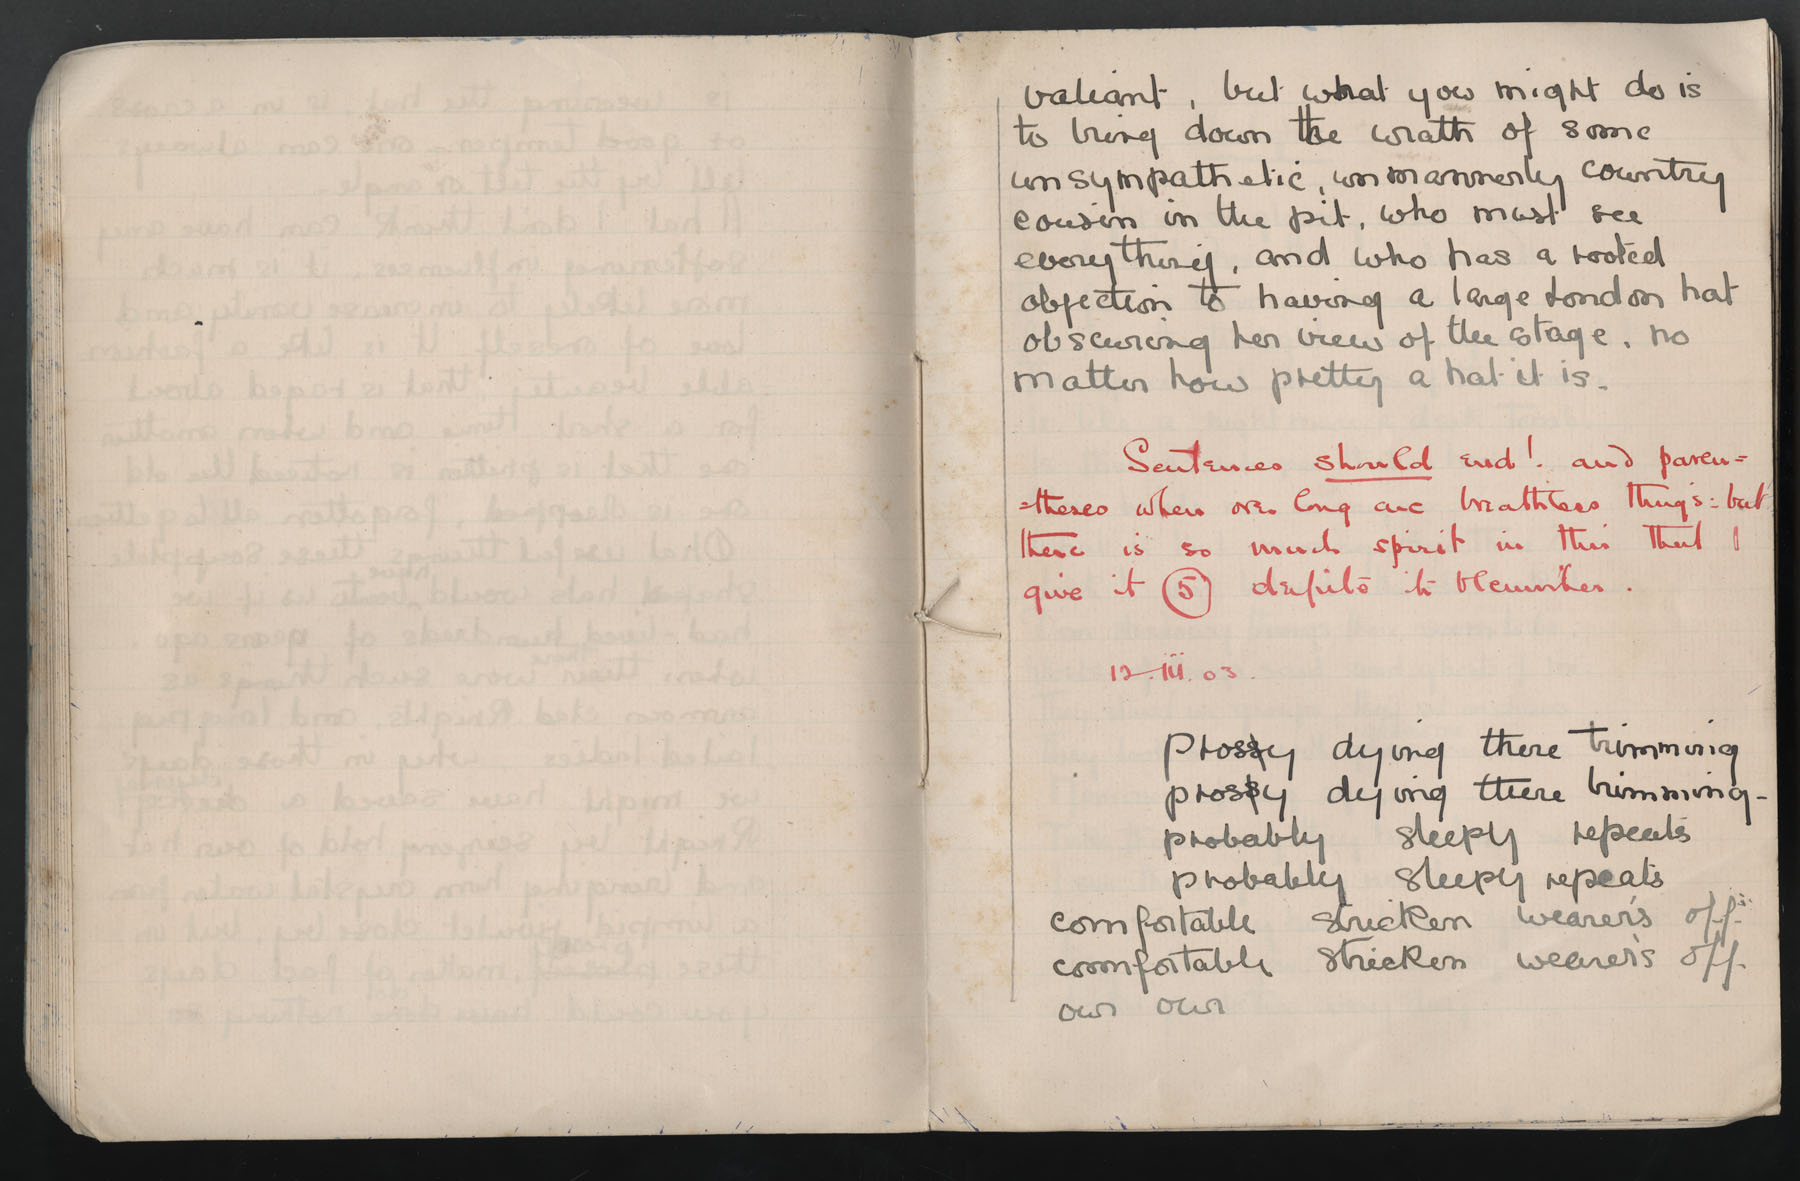 valiant, but what you might do is
to bring down the wrath of some
unsympathetic, unmannerly country
cousin in the pit, who must see
everything, and who has a rooted
objection to having a large London hat
obscuring her view of the stage, no
matter how pretty a hat it is.
Sentences should end! and paren=
=theses when over long are breathless things: but
there is so much spirit in this that I
give it 5 despite its blemishes.
12.iii.03.
prossy dying there trimming
prossy dying there trimming-
probably sleepy repeats
probably sleepy repeats
comfortable stricken wearer's off
comfortable stricken wearer's off
own own